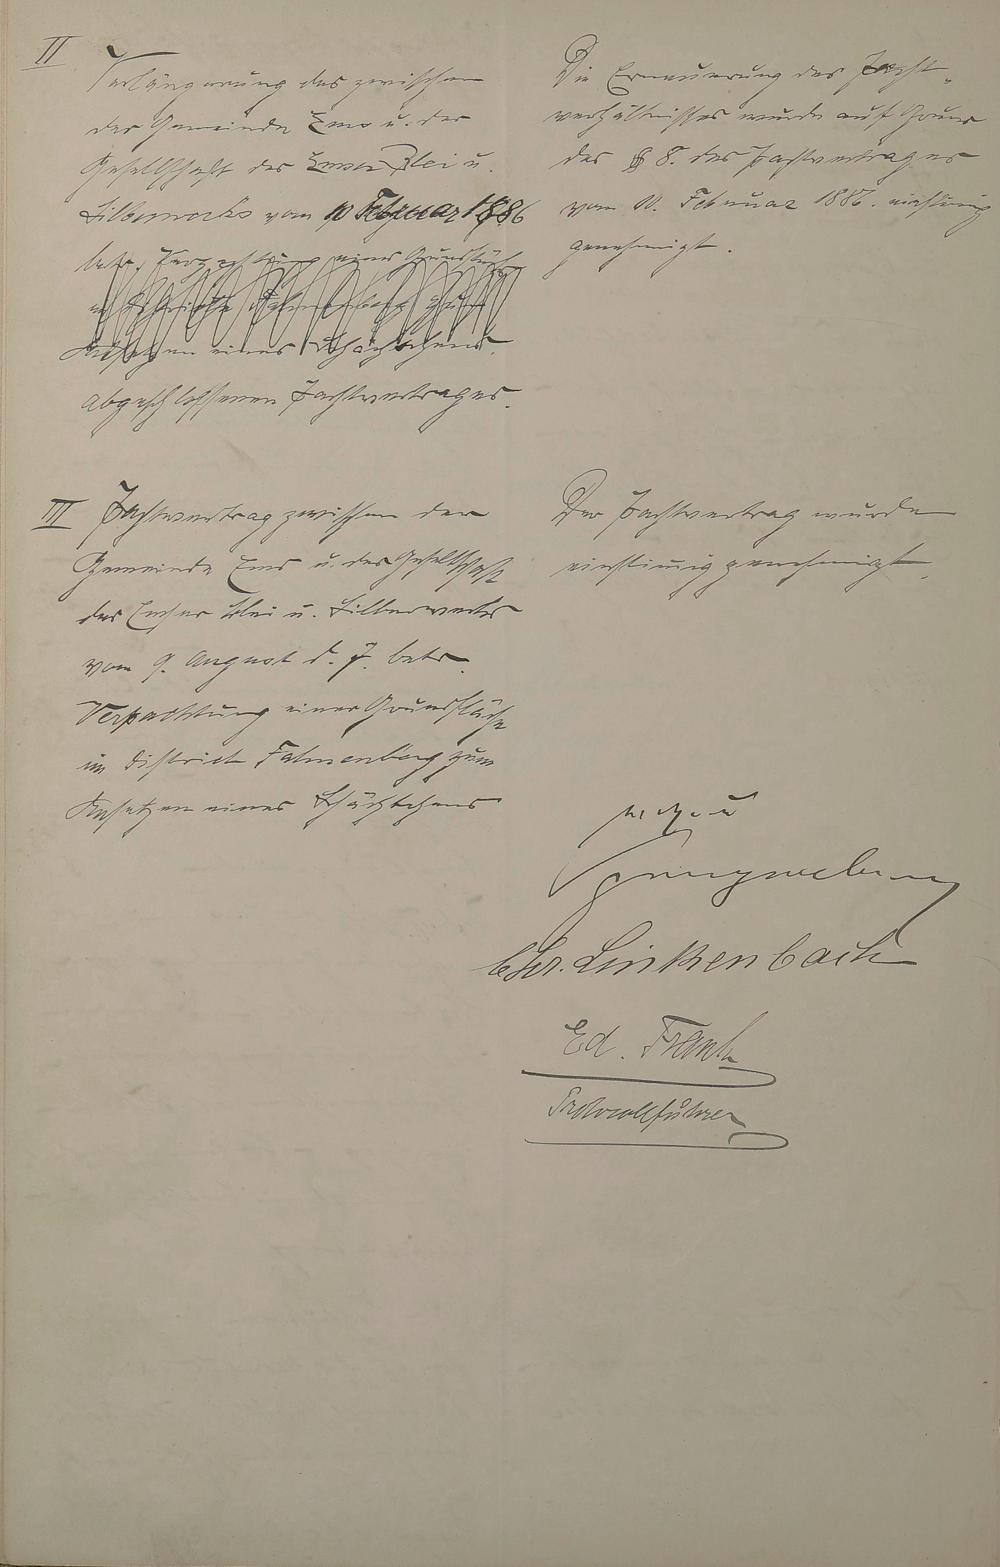 II
Verlängerung des zwischen
der Gemeinde Ems u. der
Gesellschaft des Emser Blei u.
Silberwerks vom 10 Februar 1886
betr. Verpachtung einer Grundfläche
im Distrikte Fahnenberg zum
Ansetzen eines Schächtchens
abgeschlossenen Pachtvertrages.
Die Erneuerung des Pacht-
verhältnisses wurde auf Grund
des § 8. des Pachtvertrages
vom 10. Februar 1886. einstimig
genehmigt.
III
Pachtvertrag zwischen der
Gemeinde Ems u. der Gesellschaft
des Emser Blei u. Silberwerks
vom 9. August d. J. betr.
Verpachtung einer Grundfläche
im District Fahnenberg zum
Ansetzen eines Schächtchens
Der Pachtvertrag wurde
einstimig genehmigt.
Chr. Linkenbach
Ed. Frank
Protocollführer